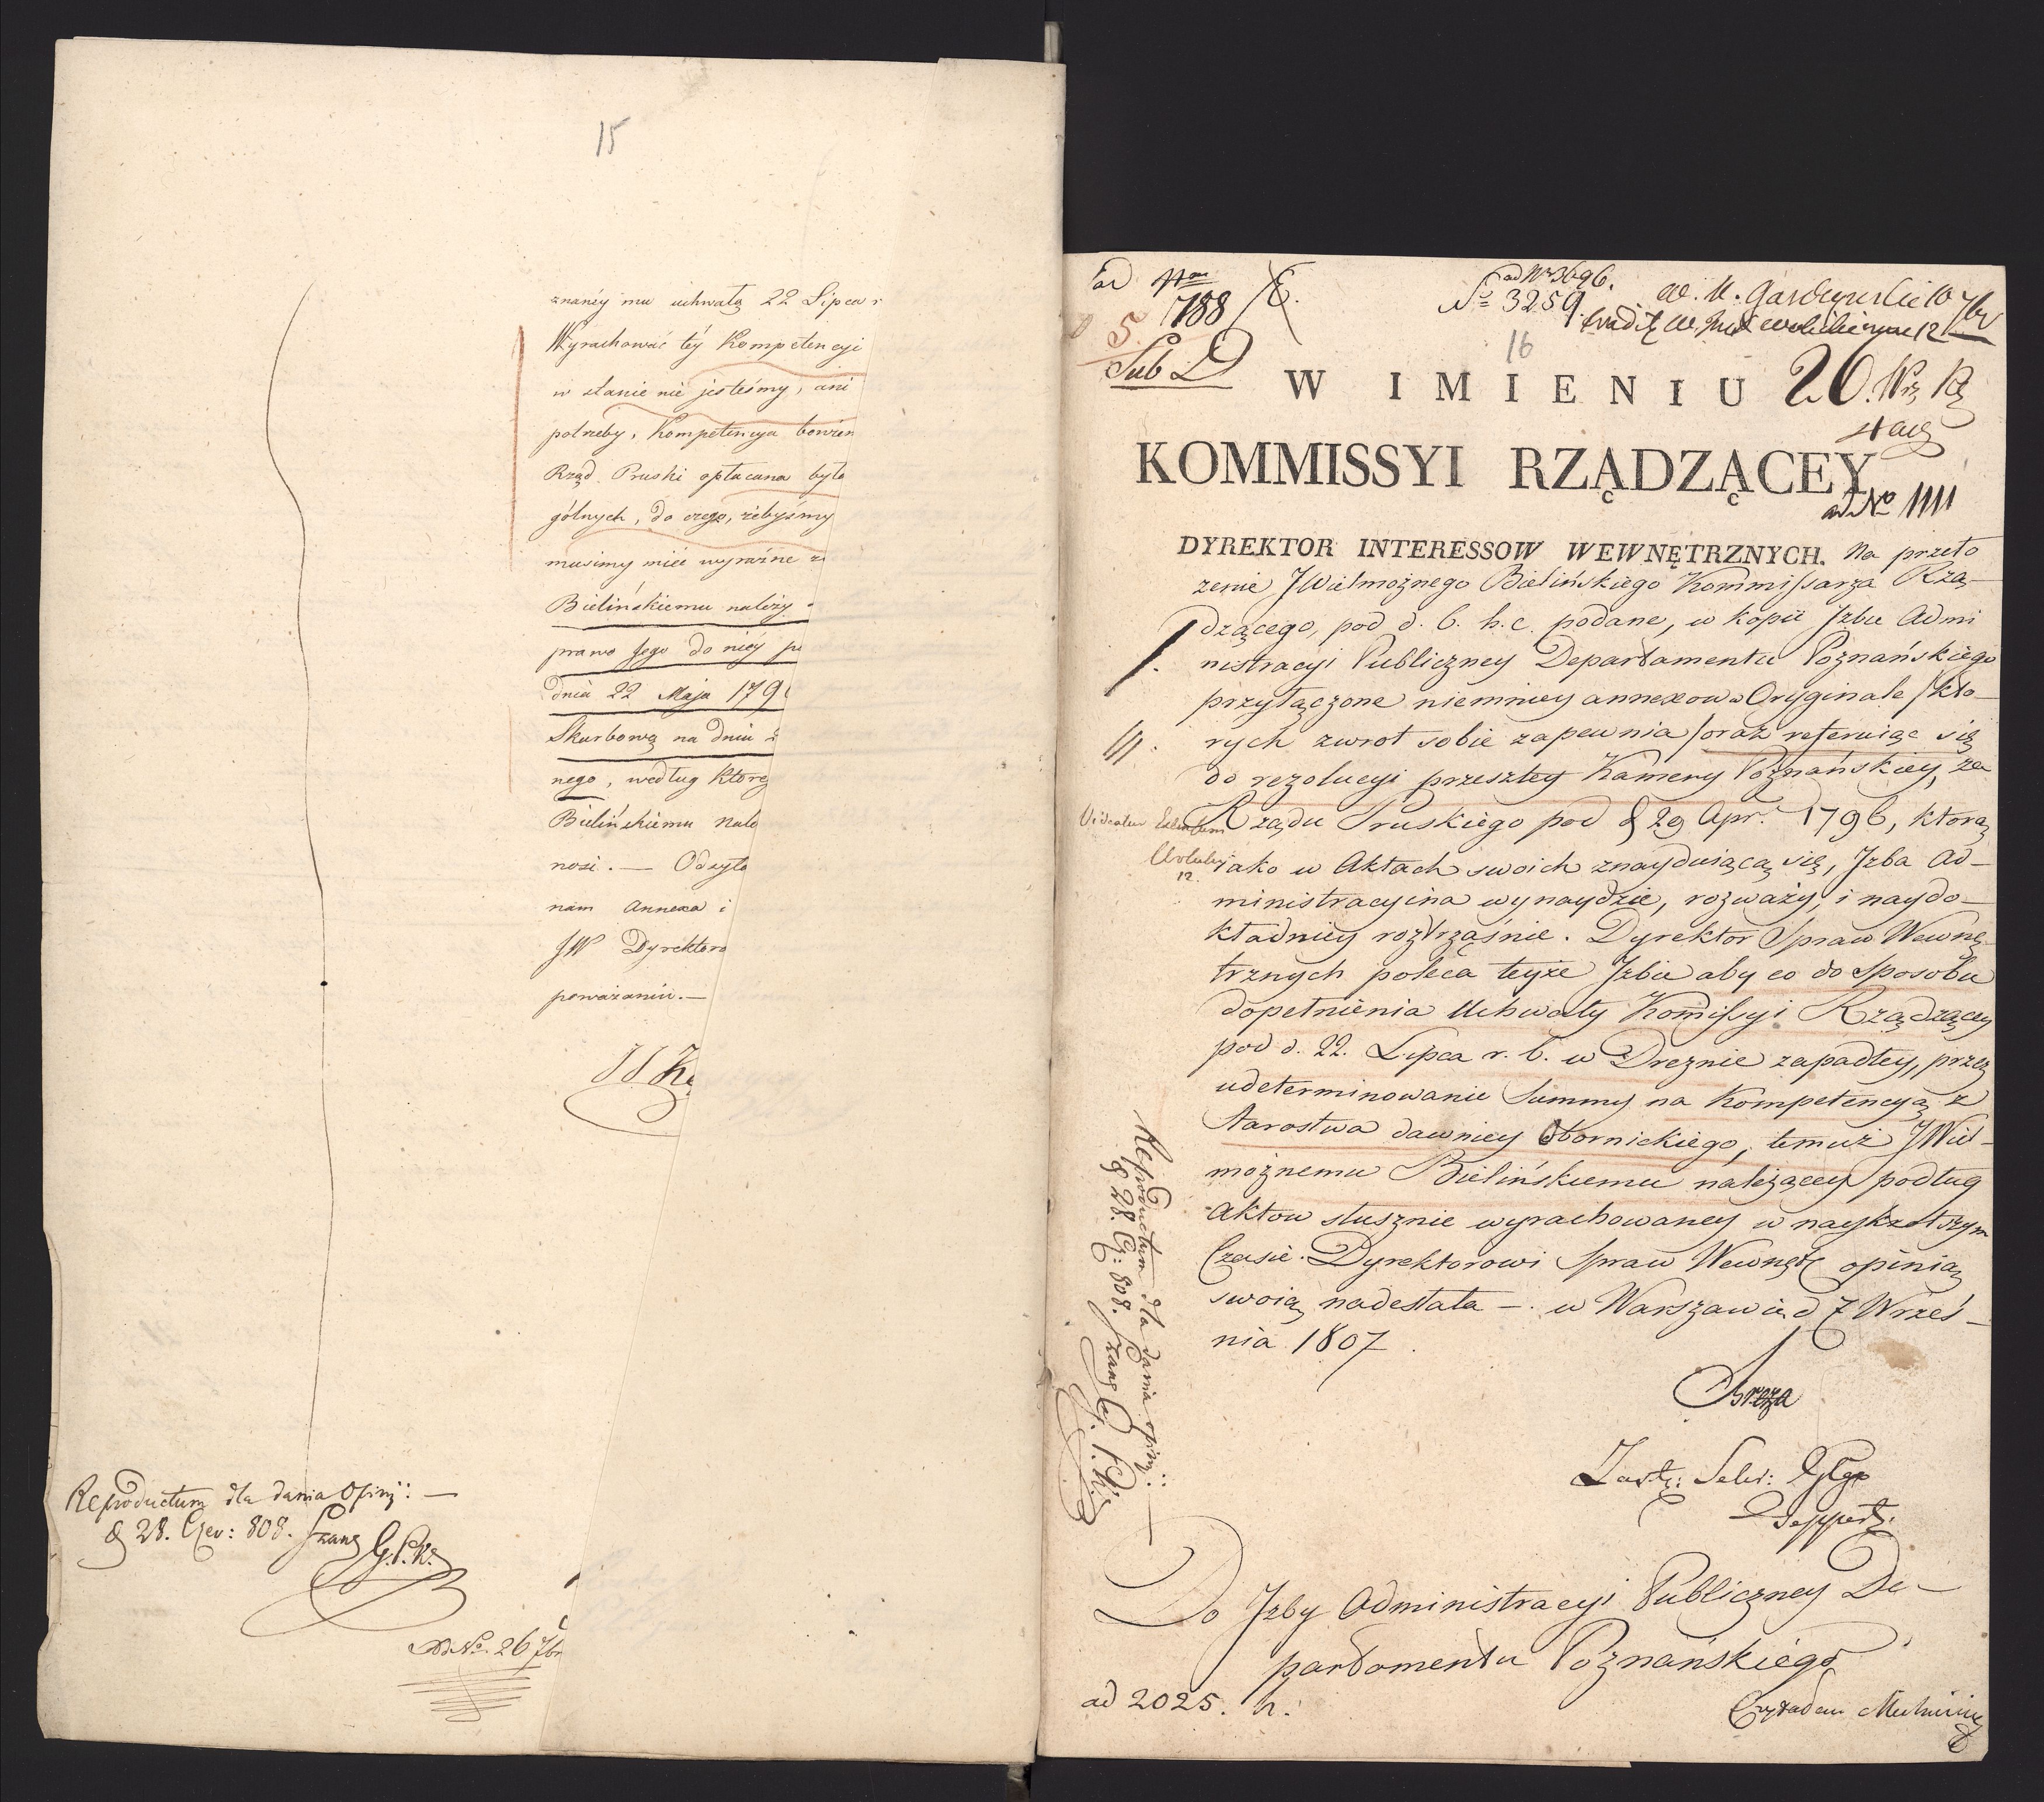 15
znaney mu uchwałą 22 Lipca r
Wyrachować tey Kompetencyi
w stanie nie jesteśmy, ani
potrzeby, Kompetencya bowiem
Rząd Pruski opłacana była
gólnych, do czego, żebyśmy
musimy mieć wyraźne
Bielińskiemu należy
prawo Jego do niéy
dnia 22 Maja 179
Skarbową na dniu
nego, według którey
Bielińskiemu nale
nosi. — Odsyła
nam annexa i
JW Dyrektora
poważaniu. —
Reproductum dla dania Opinij: —
d 28. Czer: 808. G. P. K.
ad No. 26 7br
ad Nm
788
ad Nr 3696.
No 3259
5.
Sub D
16
W IMIENIU
20.
KOMMISSYI RZĄDZĄCEY
ad No 1111
DYREKTOR INTERESSOW WEWNĘTRZNYCH. Na przeło
żenie JWielmożnego Bielińskiego Kommissarza Rzą-
dzącego, pod d. 6. h. c. podane, w kopii Izbie Admi
nistracyi Publiczney Departamentu Poznańskiego
przyłączone niemniey annexow w Oryginale /kto-
rych zwrot sobie zapewnia/ oraz referuiąc się
do rezolucyi przeszłey Kamery Poznańskiey, za
Rządu Pruskiego pod d 29 Apr. 1796, ktorą
iako w Aktach swoich znayduiącą się, Izba Ad-
12.
ministracyina wynaydzie, rozważy, i naydo-
kładniey roztrząśnie. Dyrektor Spraw Wewnę-
trznych poleca teyże Izbie aby co do sposobu
dopełnienia Uchwały Komissyi Rządzącey
pod d. 22. Lipca r. b. w Dreznie zapadłey, przez
udeterminowanie Summy na Kompetencyą z
Starostwa dawniey Obornickiego, temuż JWiel-
możnemu Bielińskiemu należącey podług
Aktow słusznie wyrachowaney w naykrotszym
Czasie Dyrektorowi Spraw Wewnętr opinią
swoią nadesłała —. w Warszawie d 7 Wrześ-
nia 1807
Breza
Zastę: Sekr: Glgo
Reproductum dla dania opinij: —
d 28. Cz: 808.
Do Izby Administracyi Publiczney De-
partamentu Poznańskiego
ad 2025. h.